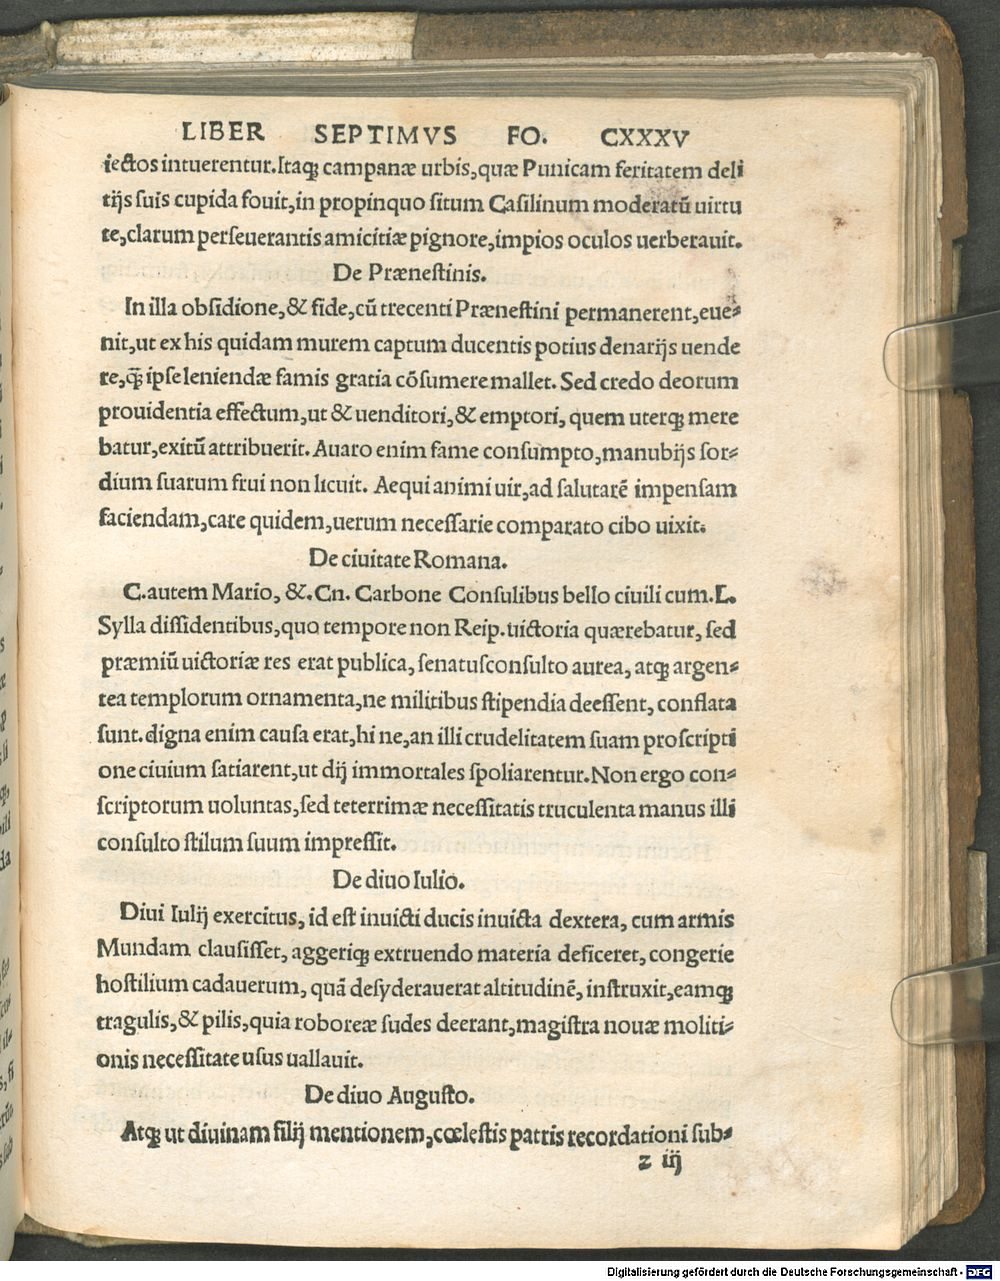 LIBER SEPTIMVS FO. CXXXV
iectos intuerentur. Itaqꝫ campanæ urbis, quæ Punicam feritatem deli
tijs suis cupida fouit, in propinquo situm Casilinum moderatũ uirtu
te, clarum perseuerantis amicitiæ pignore, impios oculos uerberauit.
De Prænestinis.
In illa obsidione, & fide, cũ trecenti Prænestini permanerent, eue-
nit, ut ex his quidam murem captum ducentis potius denarijs uende
re, q̃ȝ ipse leniendæ famis gratia cõsumere mallet. Sed credo deorum
prouidentia effectum, ut & uenditori, & emptori, quem uterqꝫ mere
batur, exitũ attribuerit. Auaro enim fame consumpto, manubijs sor-
dium suarum frui non licuit. Aequi animi uir, ad salutarẽ impensam
faciendam, care quidem, uerum necessarie comparato cibo uixit.
De ciuitate Romana.
C. autem Mario, &. Cn. Carbone Consulibus bello ciuili cum. L.
Sylla dissidentibus, quo tempore non Reip. uictoria quærebatur, sed
præmiũ uictoriæ res erat publica, senatusconsulto aurea, atqꝫ argen-
tea templorum ornamenta, ne militibus stipendia deessent, conflata
sunt. digna enim causa erat, hi ne, an illi crudelitatem suam proscripti
one ciuium satiarent, ut dij immortales spoliarentur. Non ergo con-
scriptorum uoluntas, sed teterrimæ necessitatis truculenta manus illi
consulto stilum suum impressit.
De diuo Iulio.
Diui Iulij exercitus, id est inuicti ducis inuicta dextera, cum armis
Mundam clausisset, aggeriqꝫ extruendo materia deficeret, congerie
hostilium cadauerum, quã desyderauerat altitudinẽ, instruxit, eamqꝫ
tragulis, & pilis, quia roboreæ sudes deerant, magistra nouæ moliti-
onis necessitate usus uallauit.
De diuo Augusto.
Atqꝫ ut diuinam filij mentionem, cœlestis patris recordationi sub-
z iij
Digitalisierung gefördert durch die Deutsche Forschungsgemeinschaft - DFG